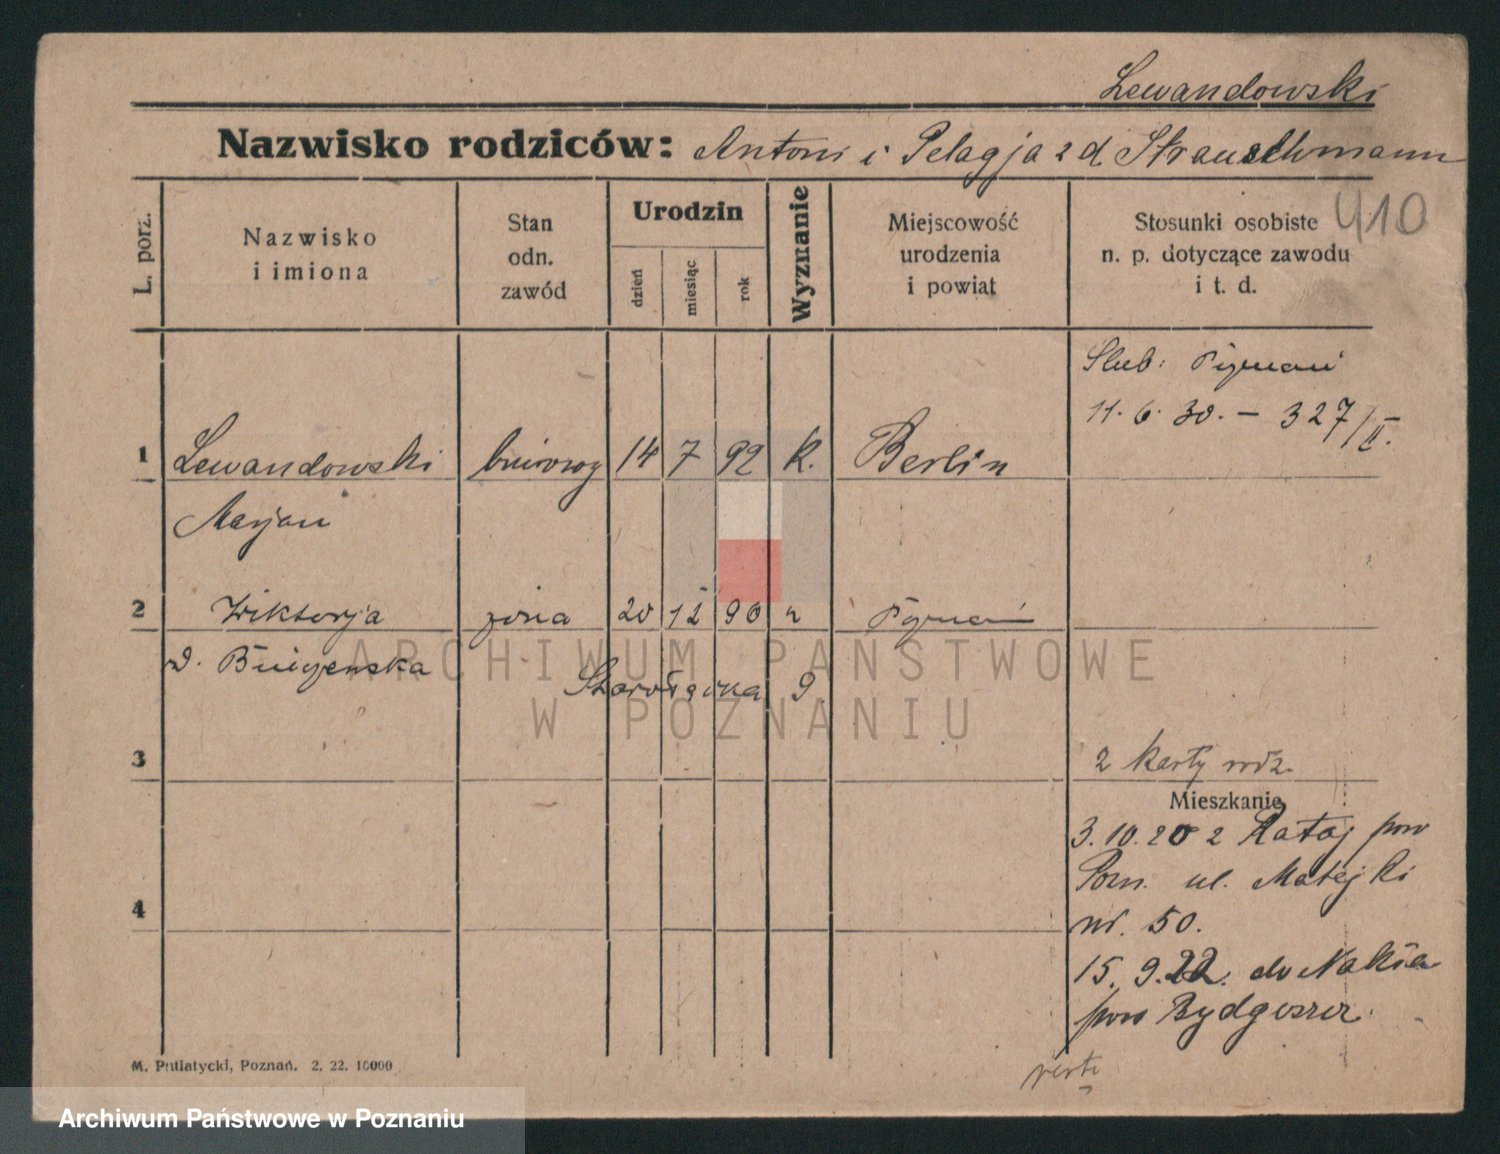 Lewandowski
Nazwisko rodziców: Antoni i Pelagja z d Strauchmann
410
L. porz.
Nazwisko
i imiona
Stan
odn.
zawód
Urodzin
dzień
miesiąc
rok
Wyznanie
Miejscowość
urodzenia
i powiat
Stosunki osobiste
n. p. dotyczące zawodu
i t. d.
Ślub: Poznań
11. 6. 30. – 327/II.
1 Lewandowski biurowy 14 7 92 k. Berlin
Marjan
2 Wiktorja żona 20 12 90 Poznań
d.
9
3
2 karty rodz.
Mieszkanie
3. 10. 20 z Rataj pow
Pozn. ul. Matejki
nr. 50.
4
15. 9. 22. do Nakła
pow Bydgoszcz
verte
M. Putiatycki, Poznań. 2. 22. 10000
ARCHIWUM PAŃSTWOWE
W POZNANIU
Archiwum Państwowe w Poznaniu